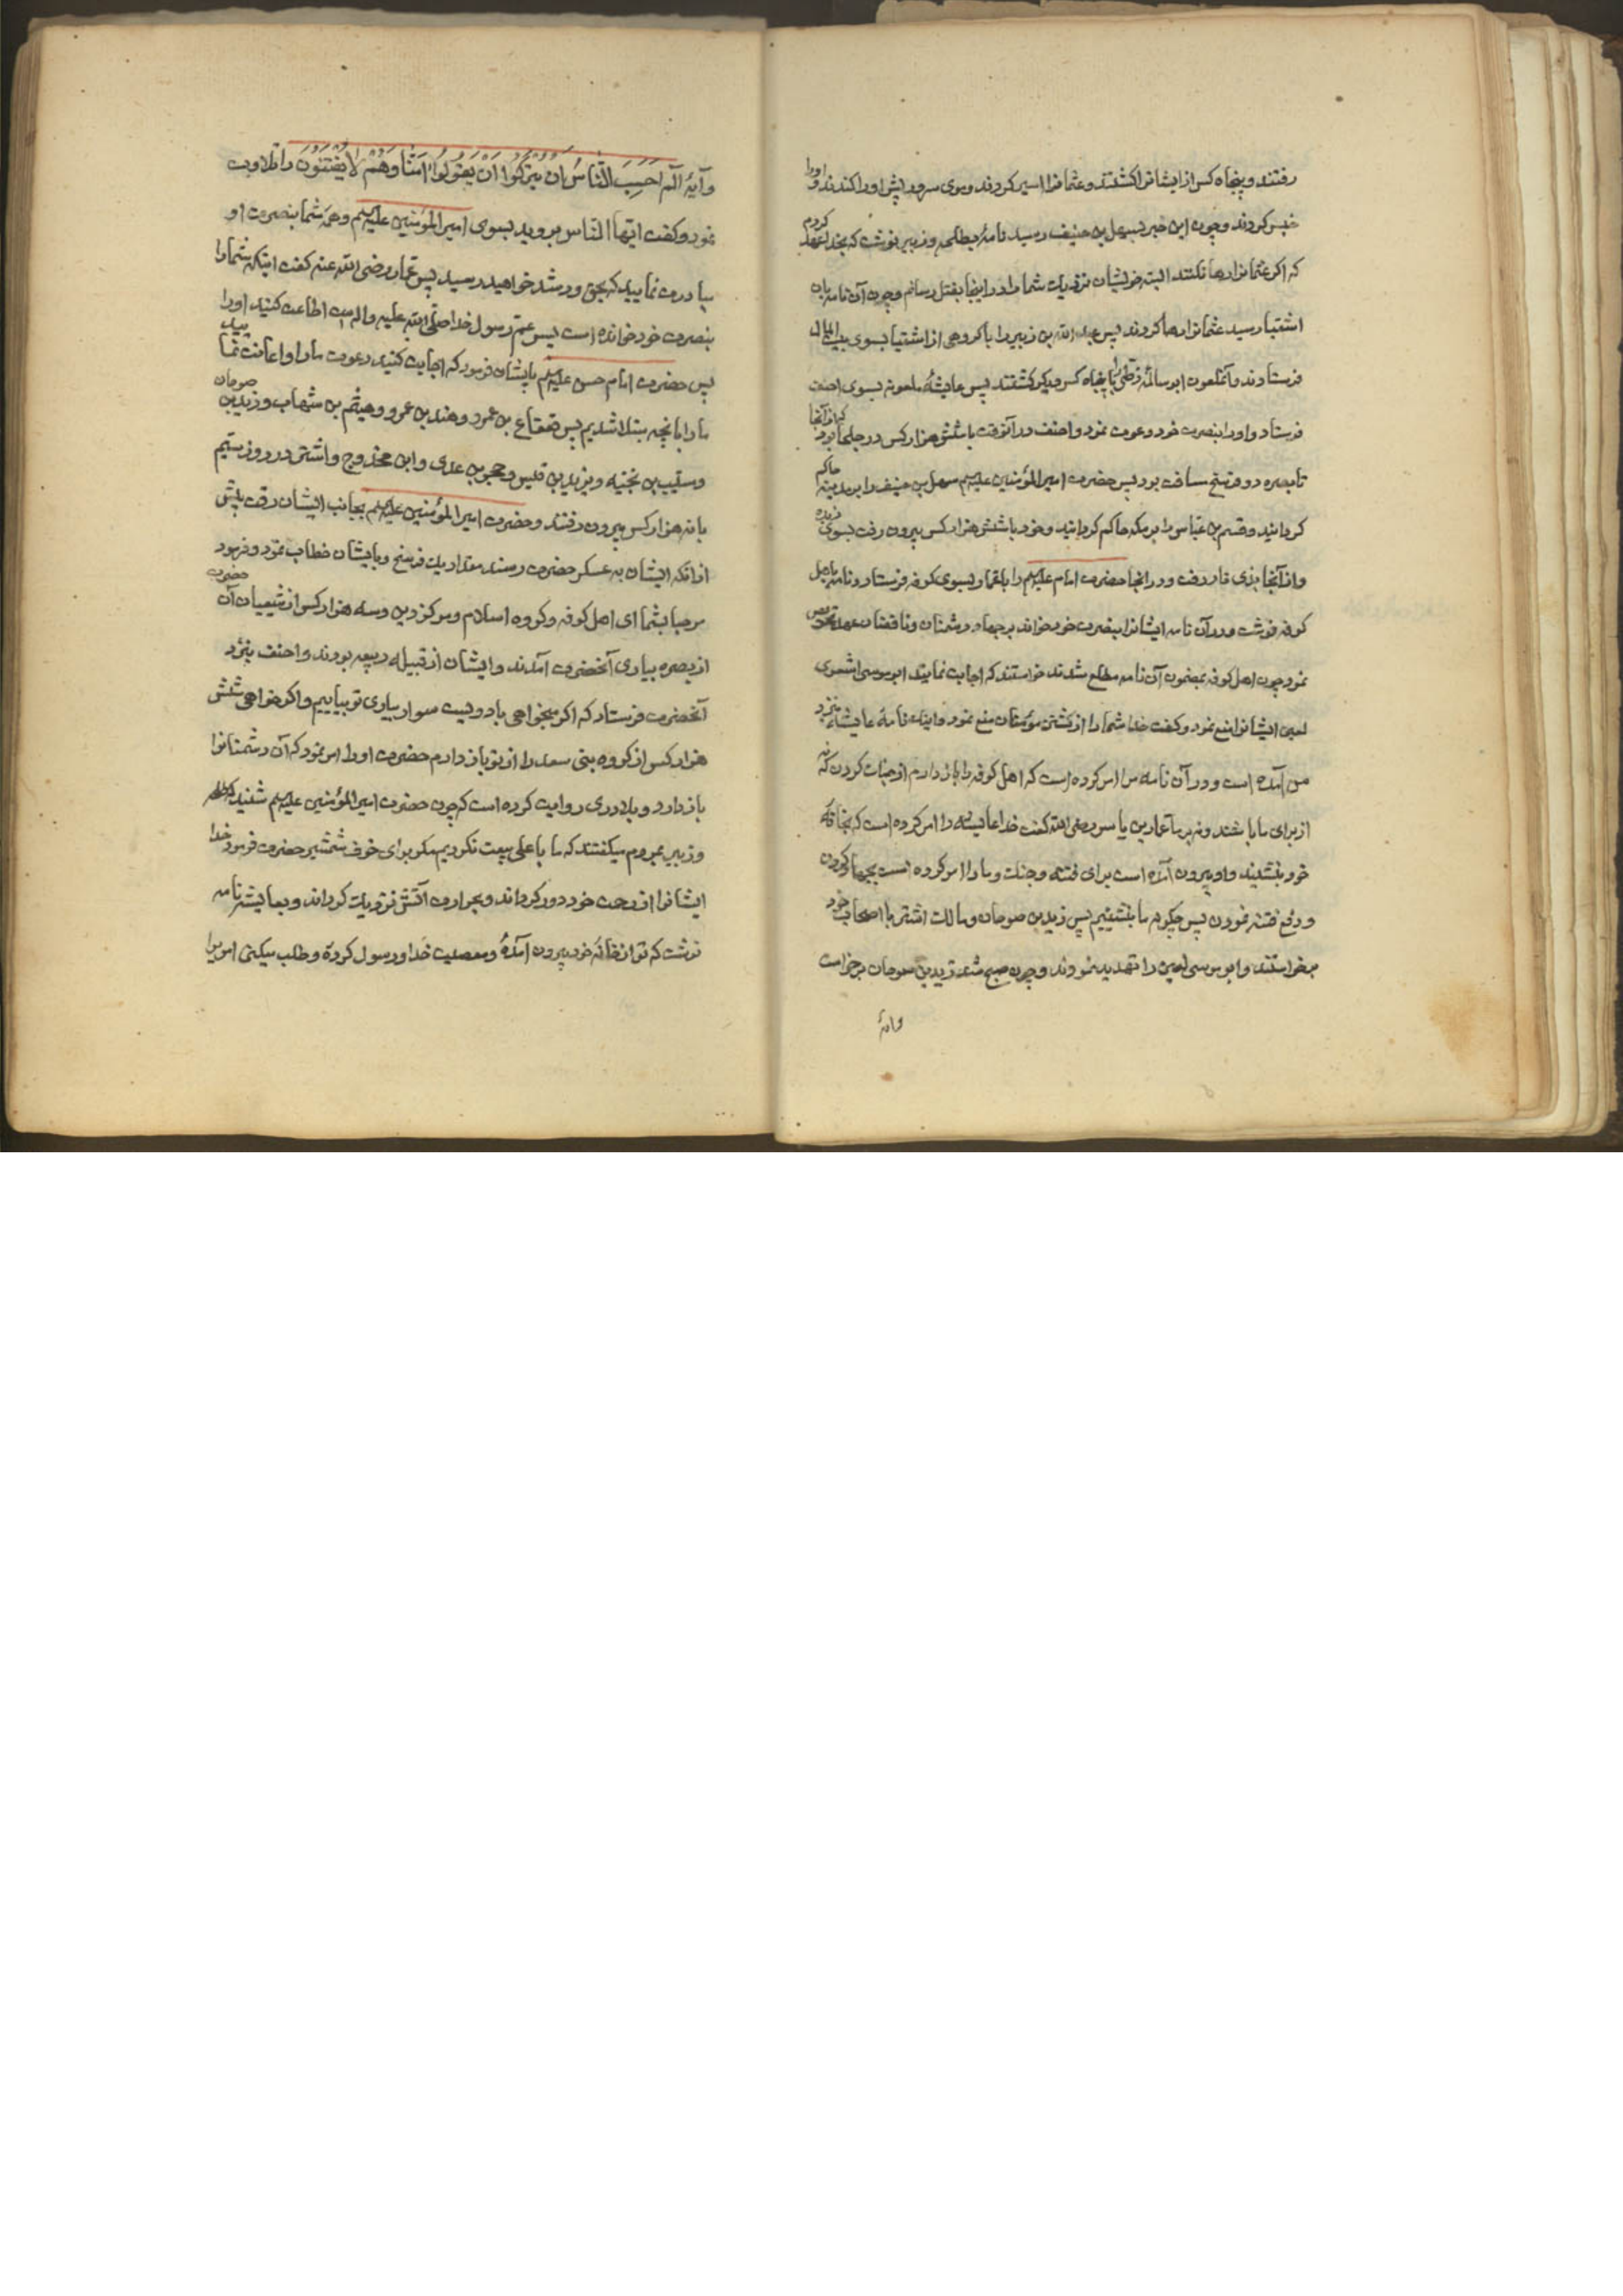 رفتند و پنجاه کس از ایشانرا کشتند و عثمانرا اسیر کردند و موی سر و ریش او را کندند و او را
حبس کردند و چون این خبر بسهل بن حنیف رسید نامهٔ بطلحه و زبیر نوشت که بخدا عهد کردم
که اکر عثمانرا رها نکنند البته خویشان نزدیك شما را در اینجا بقتل رسانم و چون آن نامه بان
اشقیا رسید عثمانرا رها کردند پس عبد الله بن زبیر را با کروهی از اشقیا بسوی بیت المال
فرستادند و آنملعون ابو سالمهٔ زطی را با پنجاه کس دیکر کشتند پس عایشهٔ ملعونه بسوی احنف
فرستاد و او را بنصرت خود دعوت نمود و احنف در آنوقت با شش هزار کس در جلحا بود که از آنجا
تا بصره دو فرسخ مسافت بود پس حضرت امیر المؤمنین علیه السلم سهل بن حنیف را بر مدینه حاکم
کردانید و قثم بن عباس را بر مکه حاکم کردانید و خود با شش هزار کس بیرون رفت بسوی ربذه
و از آنجا بذی قار رفت و در انجا حضرت امام علیه السلم را با عمار بسوی کوفه فرستاد و نامه باهل
کوفه نوشت و در آن نامه ایشانرا بنصرت خود خواند بر جهاد دشمنان و ناقضان عهد
نمود چون اهل کوفه بمضمون آن نامه مطلع شدند خواستند که اجابت نمایند ابو موسی اشعری
لعین ایشانرا منع نمود و کفت خدا شما را از کشتن مؤمنان منع نمود و اینك نامهٔ عایشه بنزد
من آمده است و در آن نامه مرا امر کرده است که اهل کوفه را باز دارم از جنك کردن که نه
از برای ما باشند و نه بر ما عمار بن یاسر رضی الله کفت خدا عایشه را امر کرده است که بخانهٔ
خود بنشیند و او بیرون آمده است برای فتنه و جنك و ما را امر کرده است بجهاد کردن
و دفع فتنه نمودن پس چکونه ما بنشینیم پس زید بن صوحان و مالك اشتر با اصحاب خود
برخواستند و ابو موسی لعین را تهدید نمودند و چون صبح شد زید بن صوحان برخواست
و آیهٔ
و آیهٔ الٓم اَحَسِبَ النّاسُ اَن یُترَکُوا اَنْ یَقُولُوا آمَنّا وَهُمْ لا یُفْتَنُونَ را تلاوت
نمود و کفت ایها الناس بروید بسوی امیر المؤمنین علیه السلم و همه شما بنصرت او
مبادرت نمایید که بحق و رشد خواهید رسید پس عمار رضی الله عنه کفت اینکه شما را
بنصرت خود خوانده است پسر عم رسول خدا صلی الله علیه و اله است اطاعت کنید او را
پس حضرت امام حسن علیه السلم بایشان فرمود که اجابت کنید دعوت ما را و اعانت نمایید
ما را بانچه مبتلا شدیم پس قعقاع بن عمرو و هند بن عمرو و هیثم بن شهاب و زید بن صوحان
و مسیب بن نجیه و یزید بن قیس و حجر بن عدی و ابن مخدوج و اشتر در روز سیم
با نه هزار کس بیرون رفتند و حضرت امیر المؤمنین علیه السلم بجانب ایشان رفت پیش
از انکه ایشان به عسکر حضرت رسند مقدار یك فرسخ و بایشان خطاب نمود و فرمود
مرحبا بشما ای اهل کوفه و کروه اسلام و مرکز دین و سه هزار کس از شیعیان آن حضرت
از بصره بیاری آنحضرت آمدند و ایشان از قبیله ربیعه بودند و احنف بنزد
آنحضرت فرستاد که اکر میخواهی با دویست سوار بیاری تو بیاییم و اکر خواهی شش
هزار کس از کروه بنی سعد را از تو باز دارم حضرت او را امر نمود که آن دشمنانرا
باز دارد و بلادری روایت کرده است که چون حضرت امیر المؤمنین علیه السلم شنید که طلحه
و زبیر بمردم میکفتند که ما با علی بیعت نکردیم مکر برای خوف شمشیر حضرت فرمود خدا
ایشانرا از رحمت خود دور کرداند و بحرارت آتش نزدیك کرداند و بعایشه نامه
نوشت که تو از خانهٔ خود بیرون آمدهٔ و معصیت خدا و رسول کردهٔ و طلب میکنی امریرا